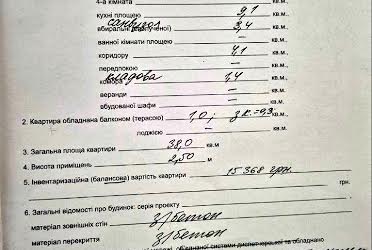 4-а кімната кв.м.,
кухні площею 9,1 кв.м.,
санвузол
вбиральні 3,4 кв.м.,
ванної кімнати площею — кв.м.
коридору 4,1 кв.м.
передпокою — кв.м.
кладова
комора 1,4 кв.м.
веранди — кв.м.
вбудованої шафи — кв.м.
2. Квартира обладнана балконом (терасою) 1,0; кв.м.
лоджією — кв.м.
3. Загальна площа квартири 38,0 кв.м.
4. Висота приміщень 2,50 м
5. Інвентаризаційна (балансова) вартість квартири 15368 грн.
грн.
6. Загальні відомості про будинок: серія проекту
матеріал зовнішніх стін з/бетон
матеріал перекриття з/бетон
системи диспетчерської та обладнано